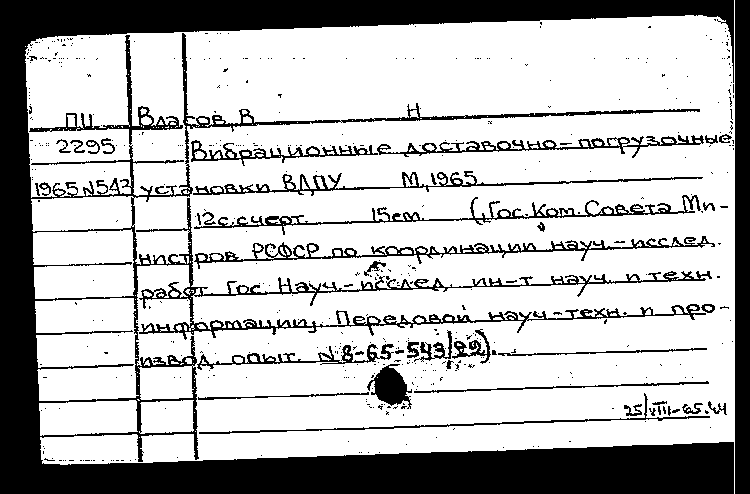 ПЦ Власов, В Н
2295 Вибрационные доставочно-погрузочные
1965 N543 установки ВДПУ. М., 1965.
12с.счерт. 15см. (Гос.Ком.Совета Ми-
нистров РСФСР по координации науч.-исслед.
работ Гос. Науч.-исслед. ин-т науч. и техн.
информации). Передовой науч-техн. и про-
извод. опыт. N 8-65-543/22).
25/VIII-65.